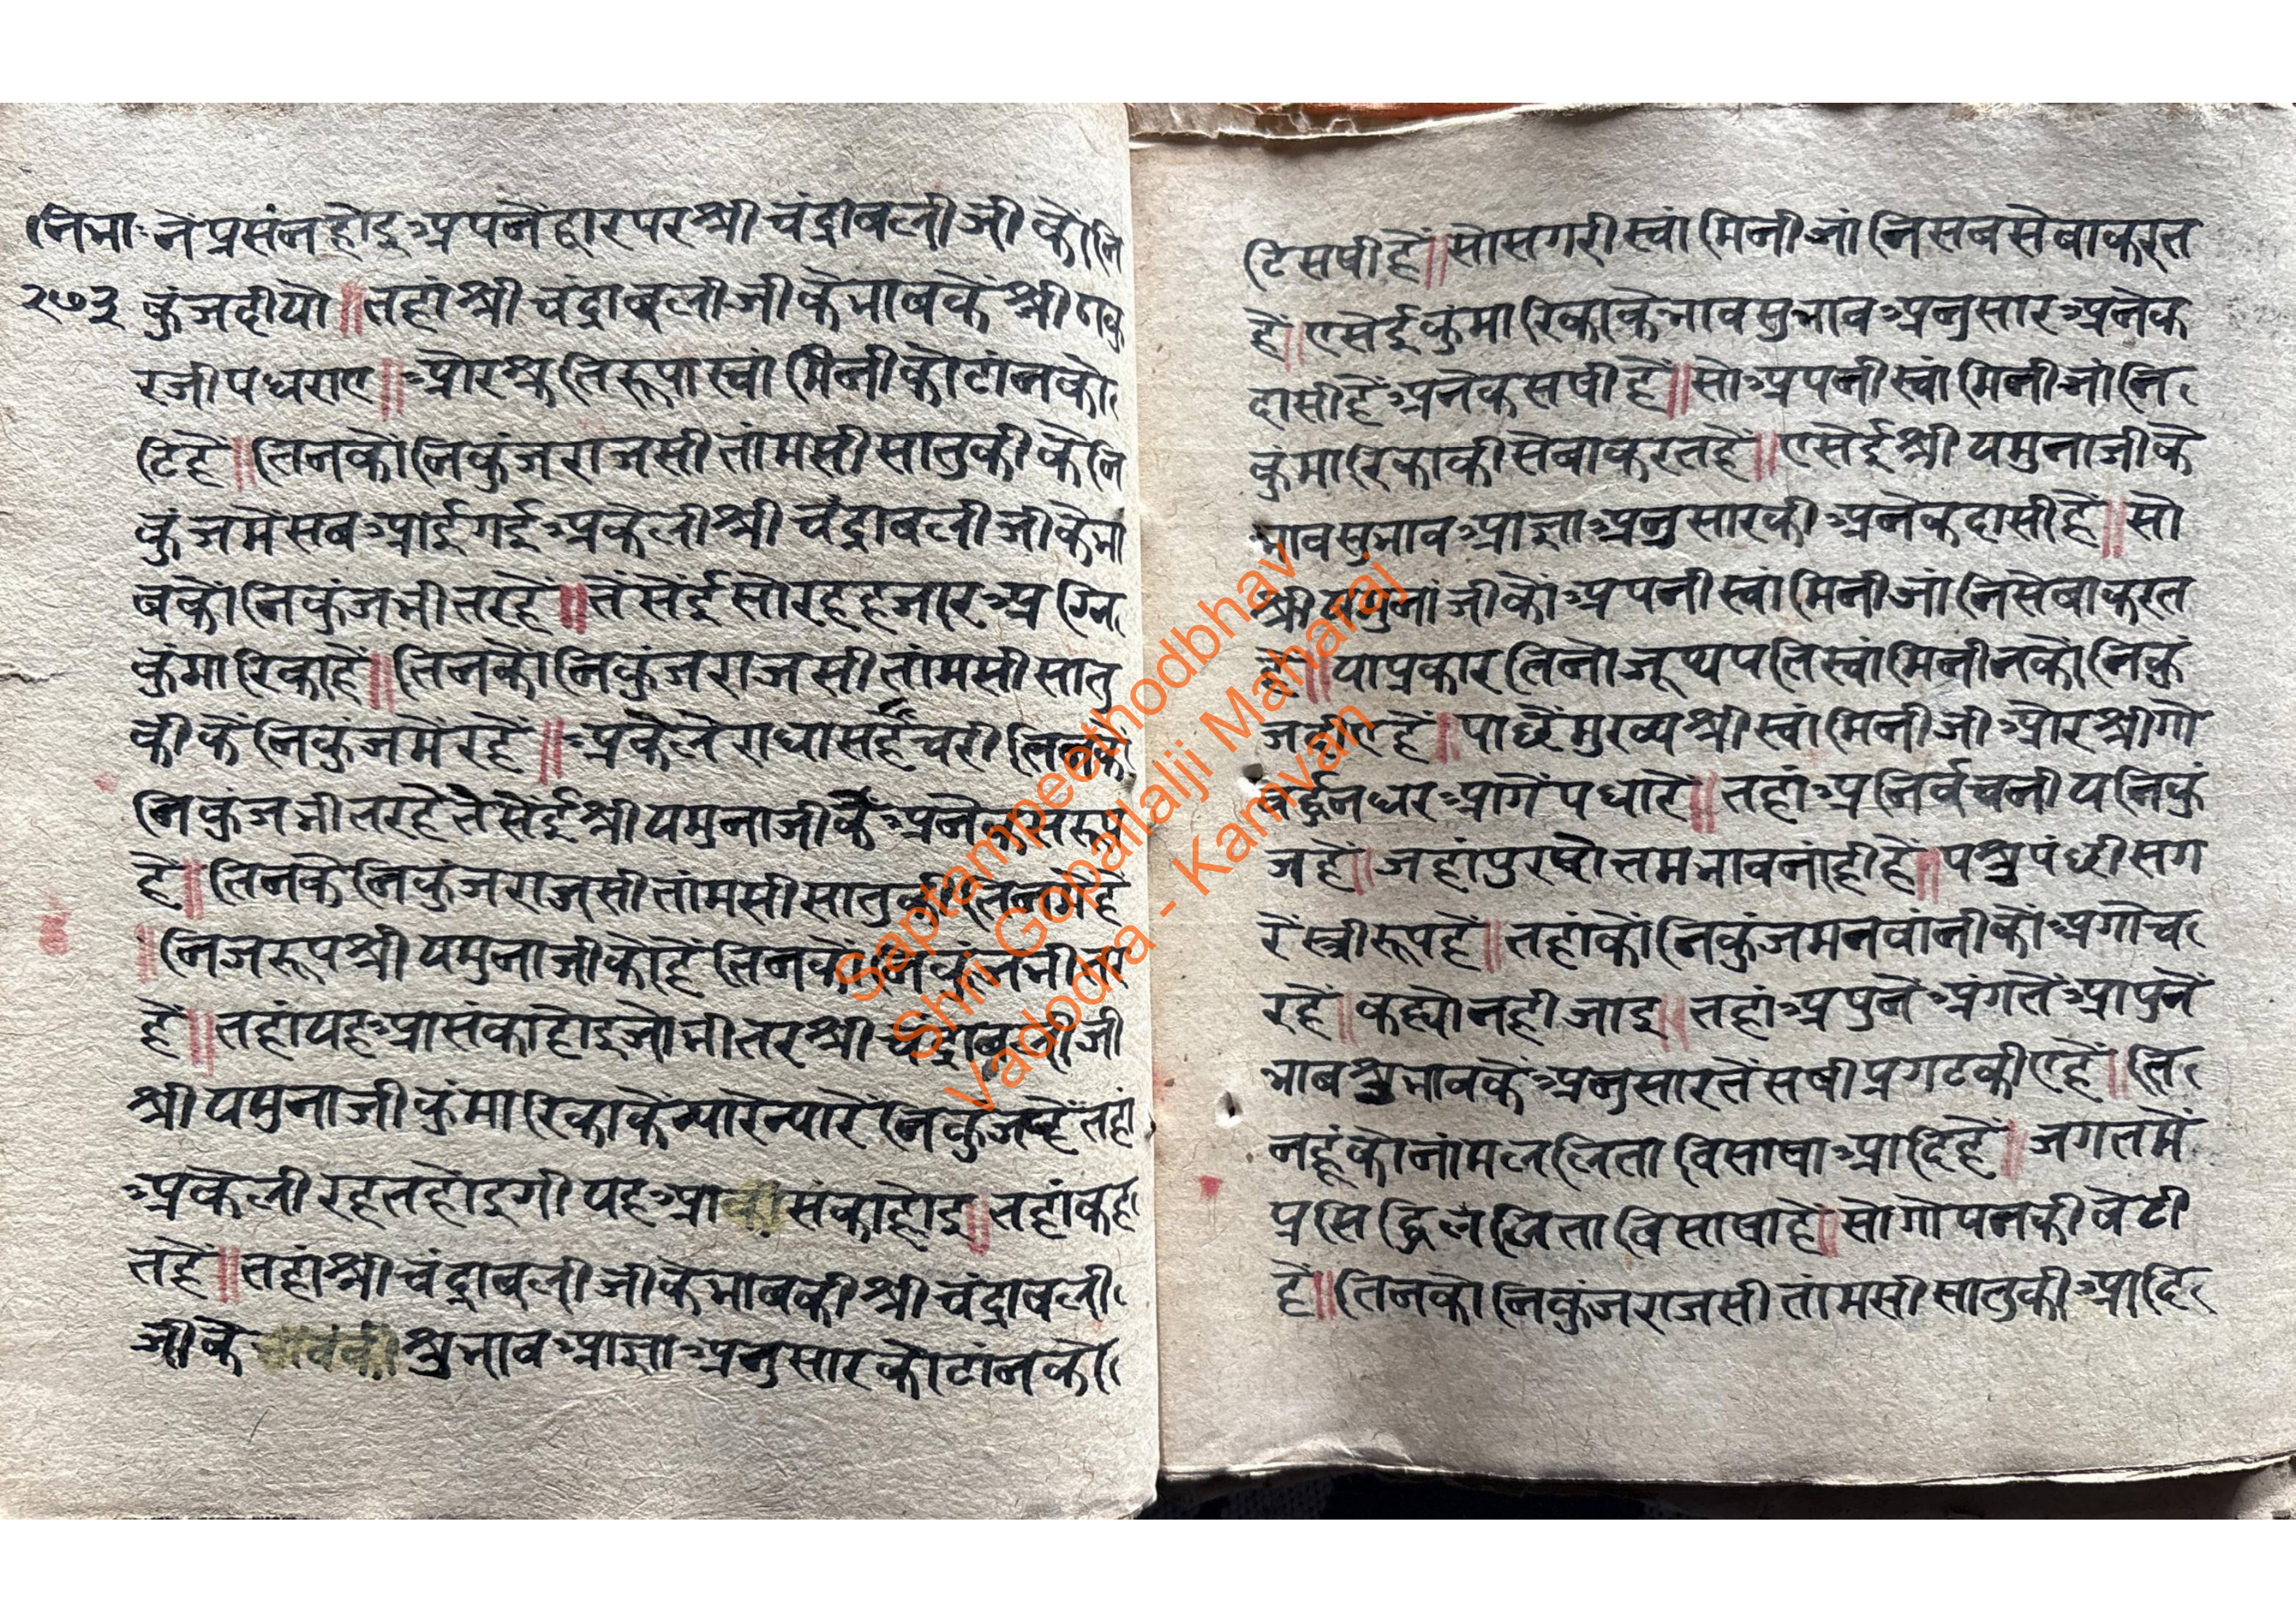 निभा
२७३
नें प्रसंन होइ अपनें द्वार पर श्री चंद्रावली जी कों नि
कुंज दीयो ॥ तहां श्री चंद्रावली जी के भाव के श्री ठाकु
रजी पधराए ॥ और श्रुतिरूपा स्वांमिनी कोटांन को
टि हें ॥ तिनकों निकुंज राजसी तांमसी सातुकी के नि
कुंज में सब आई गई अकेली श्री चंद्रावली जी के भा
व कों निकुंज भीतर हें ॥ तेंसेंई सोरह हजार अग्नि
कुंमारिका हें ॥ तिनकों निकुंज राजसी तांमसी सातु
की कें निकुंज में रहें ॥ अकेले राधा सहेंचरी तिनकें
निकुंज भीतर हें तेसेंई श्री यमुनाजी कें अनेक सरूप
हे ॥ तिनके निकुंज राजसी तांमसी सातुकी
॥ निज रूप श्री यमुनाजी को हें तिनकों निकुंज भीतर
हें ॥ तहां यह आसंका होइ जो भीतर श्री चंद्रावली जी
श्री यमुनाजी कुंमारिका कें न्यारे न्यारे निकुंज हें तहां
अकेली रहत होइगी यह आसंका होइ ॥ तहां कह
त हें ॥ तहां श्री चंद्रावली जी के भाव की श्री चंद्रावली
जी के श्रुभाव आज्ञा अनुसार कोटांन को
टि सषी हें ॥ सो सगरी स्वांमिनी जांनि सब सेवा करत
हें ॥ एसेई कुंमारिका के भाव सुभाव अनुसार अनेक
दासी हें अनेक सषी हें ॥ सो अपनी स्वांमिनी जांनि
कुंमारिका की सेवा करत हें ॥ एसेई श्री यमुनाजी के
भाव सुभाव आज्ञा अनुसार की अनेक दासी हें ॥ सो
श्री यमुनांजी कों अपनी स्वांमिनी जांनि सेवा करत
हें ॥ या प्रकार तिनो जूथपति स्वांमिनीन कों निकुं
ज हें ॥ पाछें मुख्य श्री स्वांमिनी जी और श्री गो
वर्द्धनधर आगें पधारे ॥ तहां अनिर्वचनीय निकुं
ज हें ॥ जहां पुरषोत्तम भाव नांही हें ॥ पश्रु पंछी सग
रें स्त्री रूप हें ॥ तहां कों निकुंज मन वांनी कों अगोच
र हें ॥ कह्यो नही जाइ ॥ तहां अपुनें अंग तें आपुनें
भाव श्रुभाव कें अनुसार तें सषी प्रगट कीए हें ॥ ति
नहूं को नांम ललिता विसाषा आदि हें ॥ जगत में
प्रसिद्धि ललिता विसाषा हे ॥ सो गोपन की बेटी
हे ॥ तिनकों निकुंज राजसी तांमसी सातुकी आदि
Saptampeethodbhav
Shri Gopallalji Maharaj
Vadodra - Kamvan